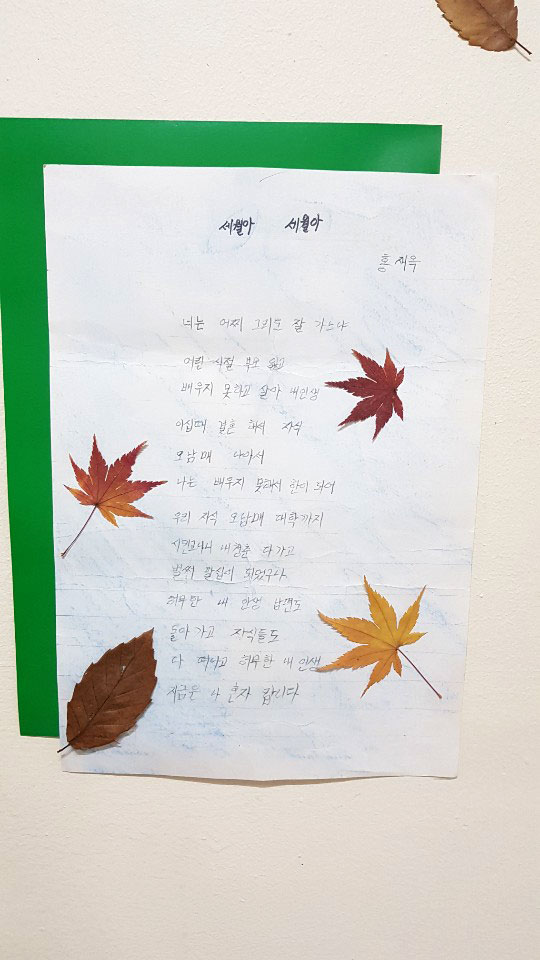 세월아 세월아
홍재옥
너는 어찌 그리도 잘 가느냐
어린 시절 부모 잃고
배우지 못하고 살아 내인생
이십때 결혼 해서 자식
오남매 나아서
나는 배우지 못해서 한이 되어
우리 자식 오남매 대학까지
시면보니나 내청춘 다가고
벌써 팔십이 되었구나
허무한 내 인생 남편도
돌아 가고 자식들도
다 떠나고 허무한 내 인생
지금은 나 혼자 랍니다